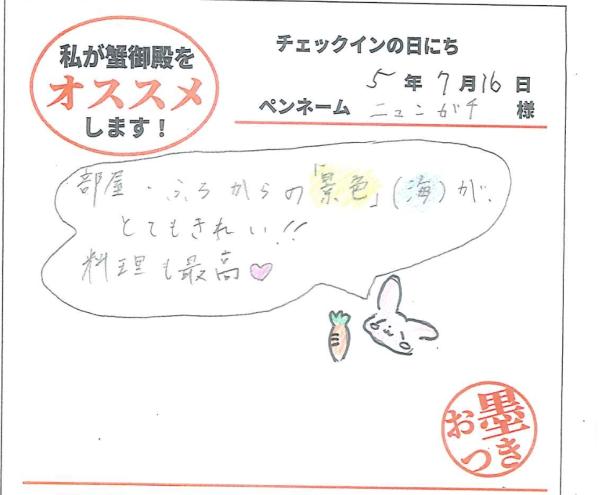 私が蟹御殿を
オススメ
します！
チェックインの日にち
5年7月16日
ペンネーム ニュンガチ 様
部屋・ふろからの「景色」(海)が、
とてもきれい!!
料理も最高♥
お墨
つき